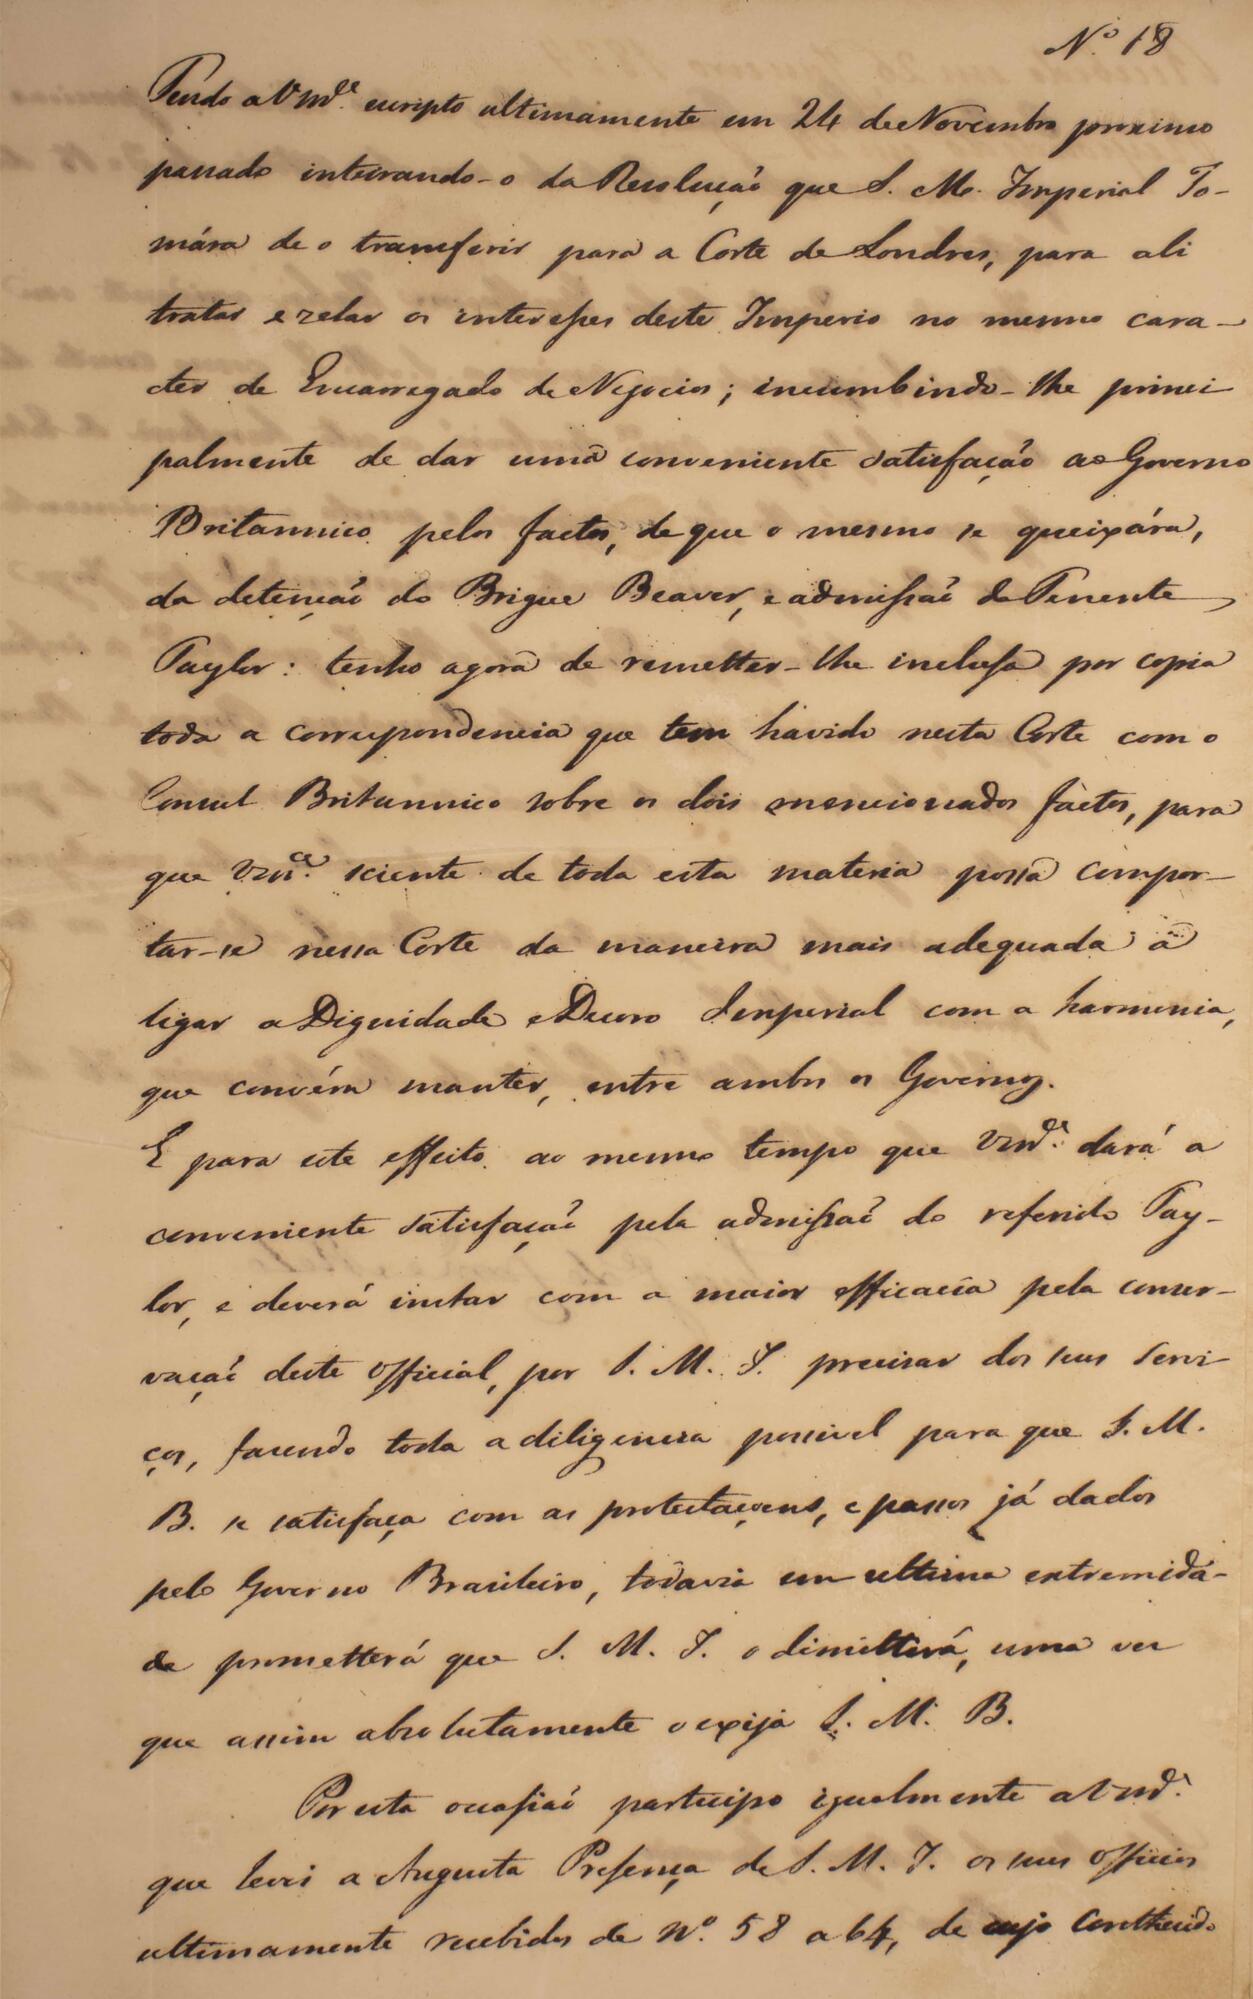 Nº 18
Tendo a Vmce. escripto ultimamente em 24 de Novembro proximo
passado inteirando-o da Resolução que S. M. Imperial To-
mára de o transferir para a Corte de Londres, para ali
tratar e zelar os interesses deste Imperio no mesmo cara-
cter de Encarregado de Negocios; incumbindo-lhe princi
palmente de dar uma conveniente satisfação ao Governo
Britannico pelos factos, de que o mesmo se queixára,
da detenção do Brigue Beaver, e admissão do Tenente
Taylor: tenho agora de remetter-lhe inclusa por copia
toda a correspondencia que tem havido nesta Corte com o
Consul Britannico sobre os dois mencionados factos, para
que Vmce. sciente de toda esta materia possa compor-
tar-se nessa Corte da maneira mais adequada a
ligar a Dignidade e Decoro Imperial com a harmonia,
que convém manter, entre ambos os Governos.
E para este effeito ao mesmo tempo que Vmce. dará a
conveniente satisfação pela admissão do referido Tay-
lor, e deverá instar com a maior efficacia pela conser-
vação deste Official, por S. M. I. precisar dos seus Servi
ços, fazendo toda a diligencia possivel para que S. M.
B. se satisfaça com as protestaçoens, e passos já dados
pelo Governo Brasileiro, todavia em ultima extremida-
de prometterá que S. M. I. o dimittirá, uma vez
que assim absolutamente o exija S. M. B.
Por esta occasião participo igualmente a Vmce.
que levei a Augusta Presença de S. M. I. os seus Officios
ultimamente recebidos de Nº. 58 a 64, de cujo Contheudo